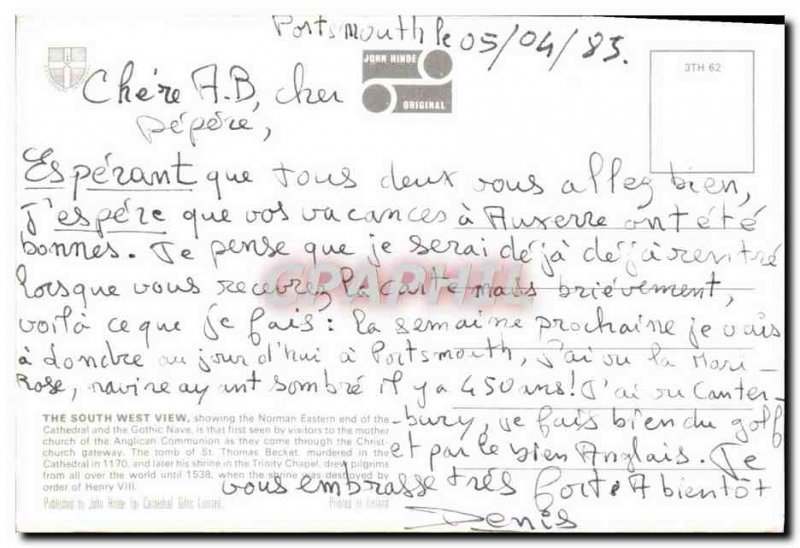 Portsmouth le 05/04/83.
JOHN HINDE
ORIGINAL
3TH 62
Chére A.B, cher
pépére,
Espérant que tous deux vous allez bien,
J'espére que vos vacances à Auxerre ont été
bonnes. Je pense que je serai déjà déjà rentré
lorsque vous recevrez la carte mais briévement,
voilà ce que je fais : la semaine prochaine je vais
à Londre au jour d'hui à Portsmouth, j'ai vu la Mari-
Rose, navire ayant sombré il y a 450 ans! J'ai vu Canter-
-bury, je fais bien du golf
et parle bien Anglais. Je
vous embrasse trés fort. A bientôt
Denis
THE SOUTH WEST VIEW, showing the Norman Eastern end of the
Cathedral and the Gothic Nave, is that first seen by visitors to the mother
church of the Anglican Communion as they come through the Christ-
church gateway. The tomb of St. Thomas Becket, murdered in the
Cathedral in 1170, and later his shrine in the Trinity Chapel, drew pilgrims
from all over the world until 1538, when the shrine was destroyed by
order of Henry VIII.
Published by John Hinde for Cathedral Gifts Limited.
Printed in Ireland
CPAPHIL